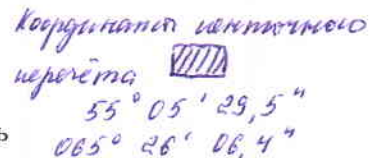 Координаты ленточного
перечёта
55° 05' 29,5"
ь 065° 26' 06,4"